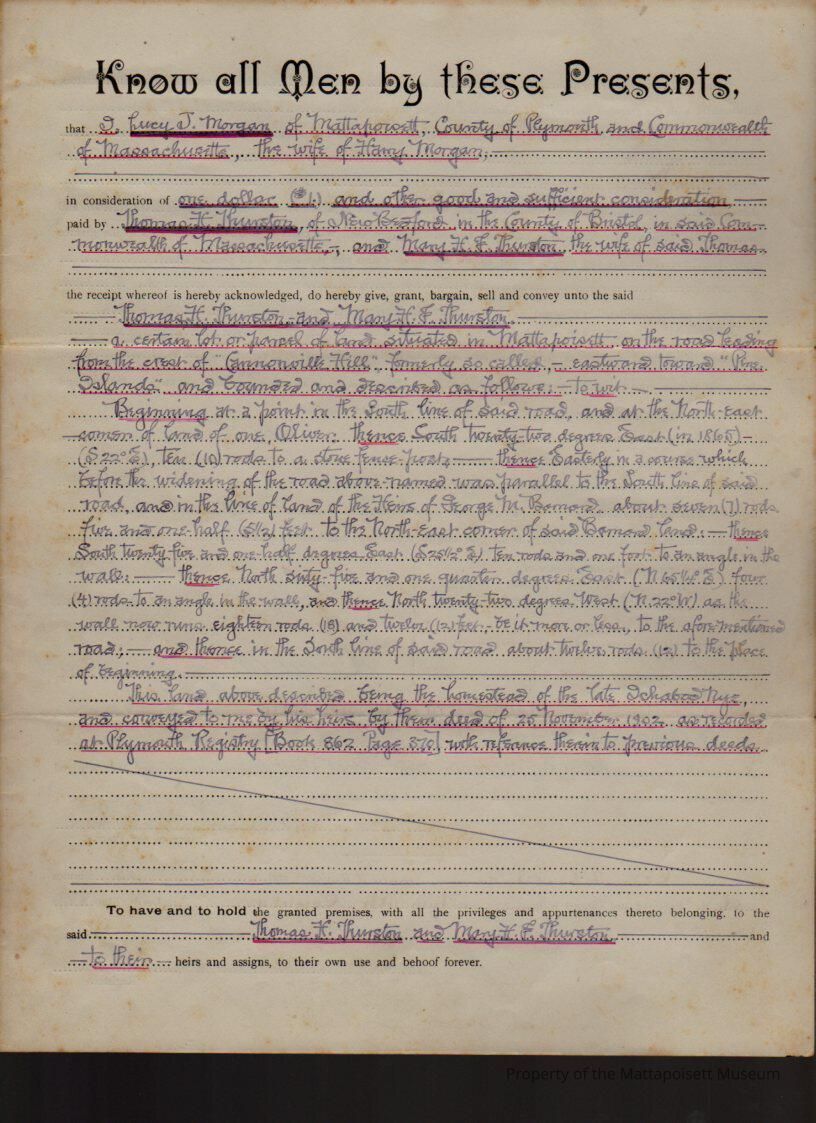 Know all Men by these Presents,
that I, Lucy J. Morgan of Mattapoisett, County of Plymouth and Commonwealth
of Massachusetts, the wife of Harry Morgan,
in consideration of one dollar ($1) and other good and sufficient consideration
paid by Thomas H. Thurston, of New Bedford in the County of Bristol, in said Com-
monwealth of Massachusetts, and Mary H. F. Thurston, the wife of said Thomas
the receipt whereof is hereby acknowledged, do hereby give, grant, bargain, sell and convey unto the said
Thomas H. Thurston and Mary H. F. Thurston
a certain lot or parcel of land situated in Mattapoisett on the road leading
from the crest of "Cannonville Hill" formerly so called, – eastward toward "Pine
Islands" and bounded and described as follows: – to wit –
Beginning at a point in the South line of said road, and at the North-east
corner of land of one Oliver thence South twenty-two degrees East (in 1865) –
(S 22° E), ten (10) rods to a stone fence-post; – thence Easterly in a course which
before the widening of the road above-named was parallel to the South line of said
road, and in the line of land of the Heirs of George M. Barnard about seven (7) rods
five and one-half (5½) feet to the North-east corner of said Barnard land: – thence
South twenty-five and one-half degrees East (S 25½° E) ten rods and one foot to an angle in the
wall: – thence North sixty-five and one quarter degrees East (N 65¼° E) four
(4) rods to an angle in the wall, and thence North twenty-two degrees West (N. 22° W) as the
wall now runs eighteen rods (18) and twelve (12) feet, be it more or less, to the afore-mentioned
road; – and thence in the South line of said road about twelve rods (12) to the place
of beginning.
This land above described being the homestead of the late Ichabod Nye,
and conveyed to me by his heirs by their deed of 25 November 1902 as recorded
at Plymouth Registry [Book 862 Page 370] with reference therein to previous deeds.
To have and to hold the granted premises, with all the privileges and appurtenances thereto belonging, to the
said Thomas H. Thurston and Mary H. F. Thurston and
to their heirs and assigns, to their own use and behoof forever.
Property of the Mattapoisett Museum